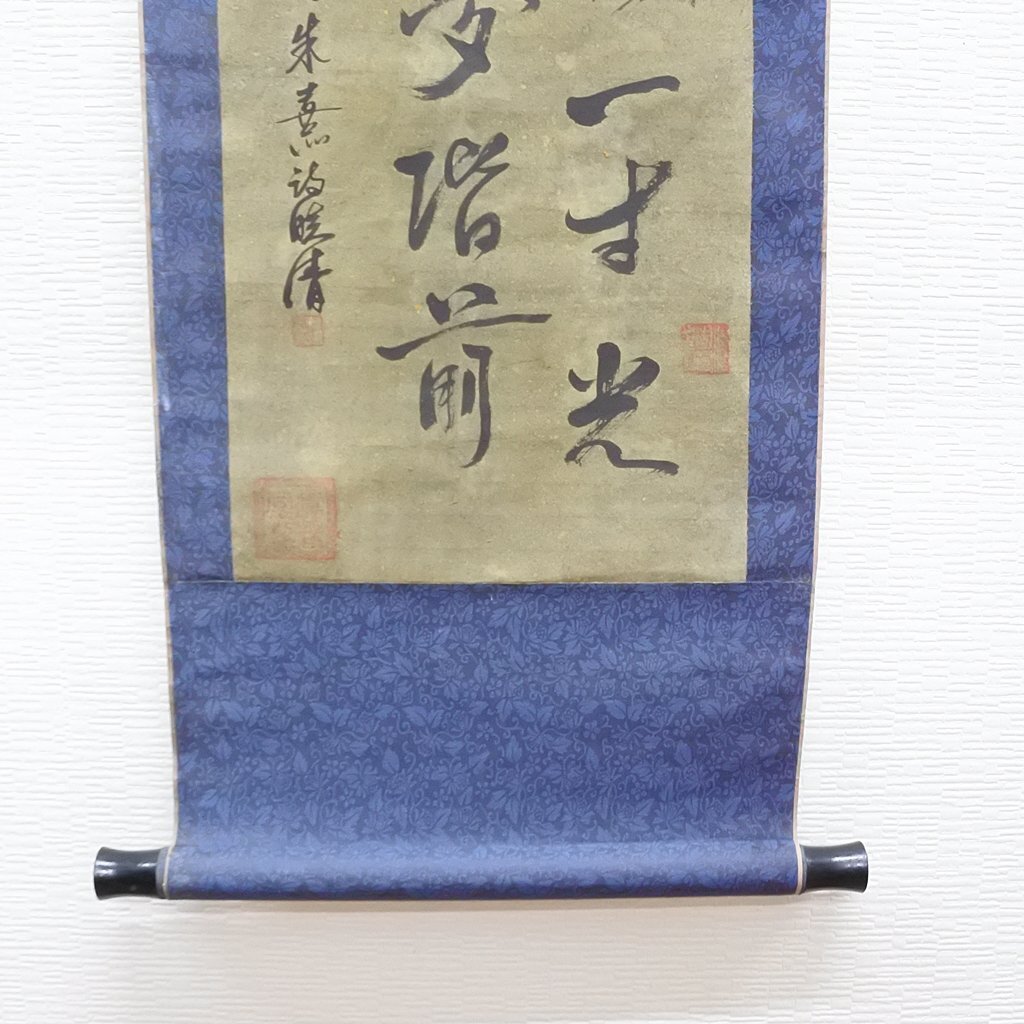 一寸光
夢階前
朱熹詩 清